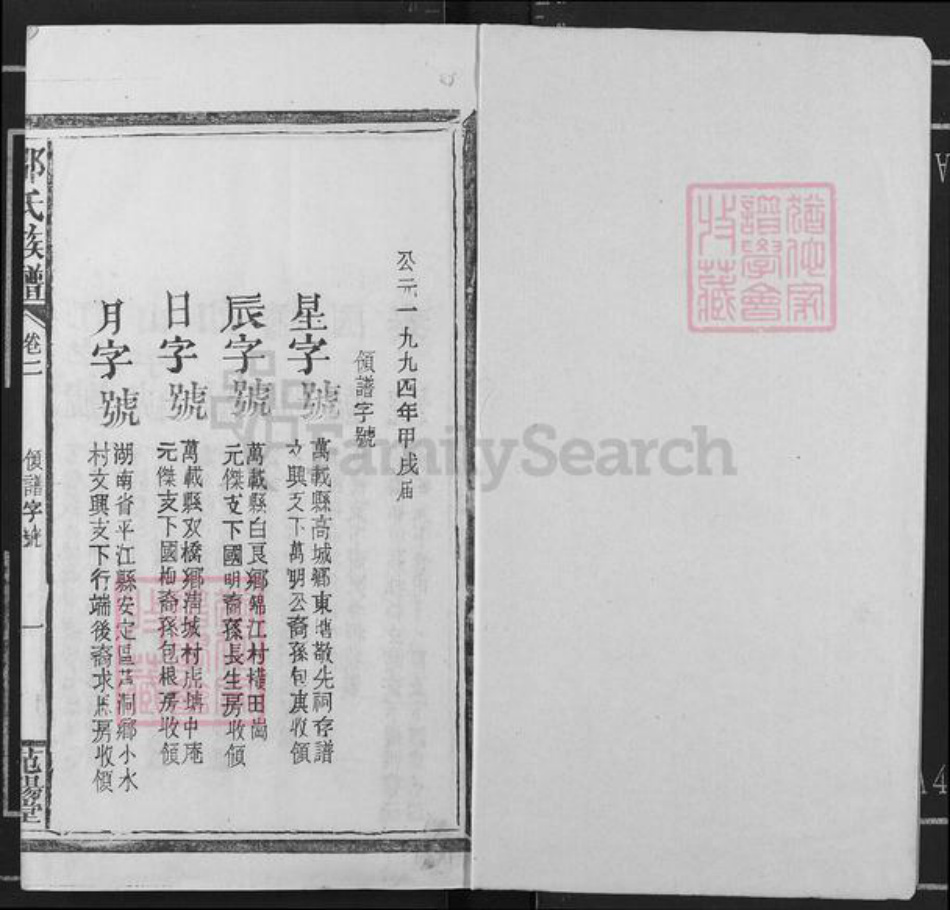 公元一九九四年甲戌届
領譜字號
星字號
萬載縣高城鄉東塘敬先祠存譜
文興支下萬明公裔孫包真收領
辰字號
萬載縣白良鄉錦江村橫田崗
元傑支下國明裔孫長生房收領
日字號
萬載縣双橋鄉清城村虎塘中庵
元傑支下國梅裔孫包根房收領
月字號
湖南省平江縣安定區芦洞鄉小水
村文興支下行端後裔求烝房收領
鄒氏族譜
卷二
領譜字號
一
范陽堂
譜學會
收藏
FamilySearch
A
A4